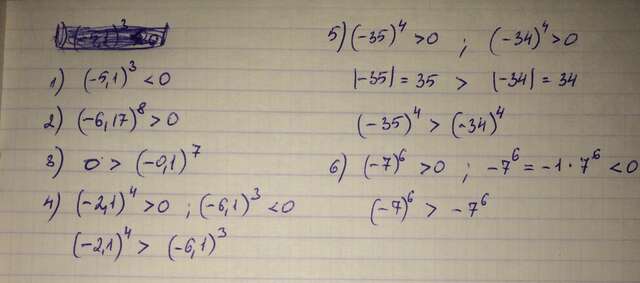 1) (-5,1)³ < 0
2) (-6,17)⁸ > 0
3) 0 > (-0,1)⁷
4) (-2,1)⁴ > 0 ; (-6,1)³ < 0
(-2,1)⁴ > (-6,1)³
5) (-35)⁴ > 0 ; (-34)⁴ > 0
|-35| = 35 > |-34| = 34
(-35)⁴ > (-34)⁴
6) (-7)⁶ > 0 ; -7⁶ = -1 · 7⁶ < 0
(-7)⁶ > -7⁶